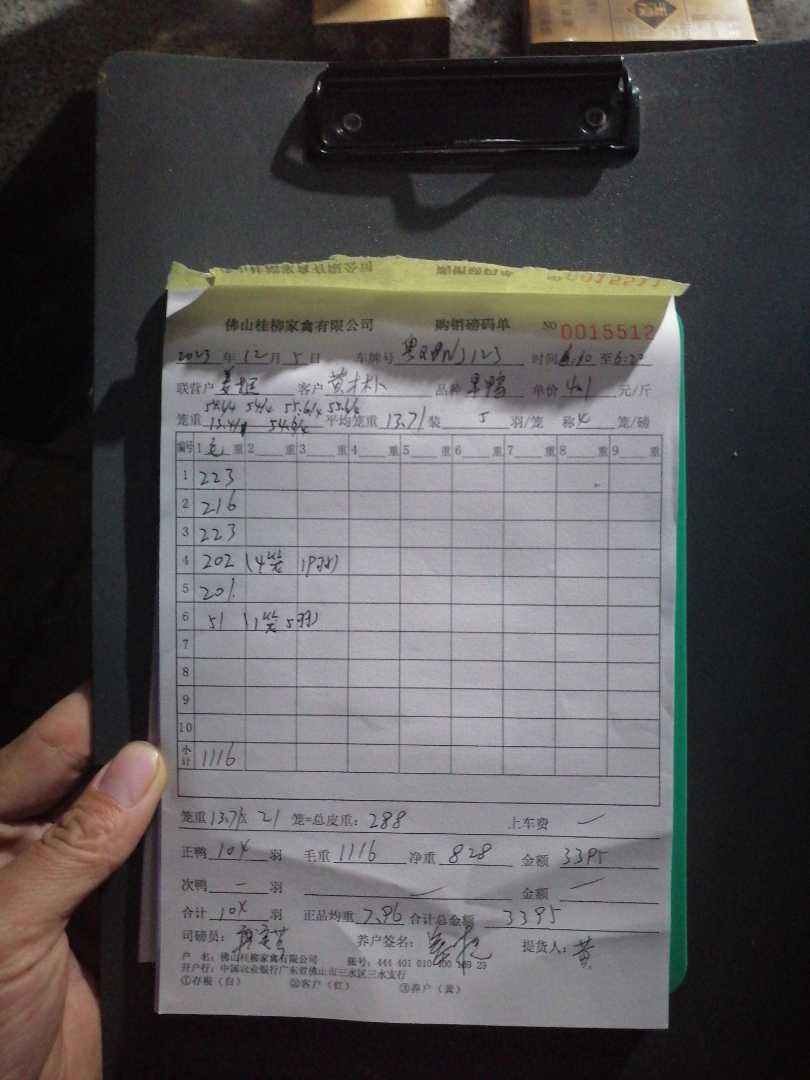 佛山桂柳家禽有限公司 购销磅码单 NO 0015511
佛山桂柳家禽有限公司 购销磅码单 NO 0015512
2023年12月5日 车牌号 时间 至6:2
联营户 客户 黄 品种 单价 4.1 元/斤
54.6/4 54/4 55.6/4 55.6/4
笼重 54.6/4 平均笼重 13.71 装 5 羽/笼 称 4 笼/磅
编号 1 毛 重 2 重 3 重 4 重 5 重 6 重 7 重 8 重 9 重
1 223
2 216
3 223
4 202 (4笼 19羽)
5 201
6 51 (1笼 5羽)
7
8
9
10
小计 1116
笼重 13.71x 21 笼=总皮重: 288 上车费 一
正鸭 104 羽 毛重 1116 净重 828 金额 3395
次鸭 一 羽 一 金额 一
合计 104 羽 正品均重 7.96 合计总金额 3395
司磅员: 养户签名: 提货人: 黄
户 名: 佛山桂柳家禽有限公司 账号: 444 401 010 400 169 29
开户行: 中国农业银行广东省佛山市三水区三水支行
①存根(白) ②客户(红) ③养户(黄)